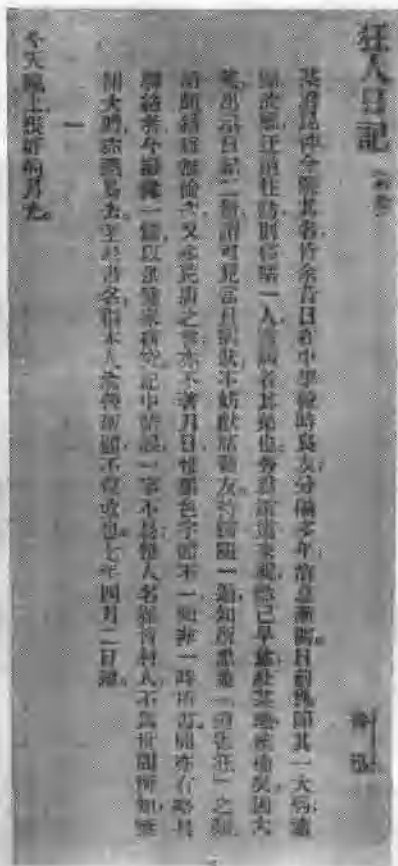 狂人日記
魯迅
某君昆仲,今隱其名,皆余昔日在中學校時良友;分隔多年,消息漸闕。日前偶聞其一大病;適
歸故鄉,迂道往訪,則僅晤一人,言病者其弟也。勞君遠道來視,然已早愈,赴某地候補矣。因大
笑,出示日記二册,謂可見當日病狀,不妨獻諸舊友。持歸閱一過,知所患蓋「迫害狂」之類。
語頗錯雜無倫次,又多荒唐之言;亦不著月日,惟墨色字體不一,知非一時所書。間亦有略具
聯絡者,今撮錄一篇,以供醫家研究。記中語誤,一字不易;惟人名雖皆村人,不爲世間所知,無
關大體,然亦悉易去。至於書名,則本人愈後所題,不復改也。七年四月二日識。
一
今天晚上,很好的月光。